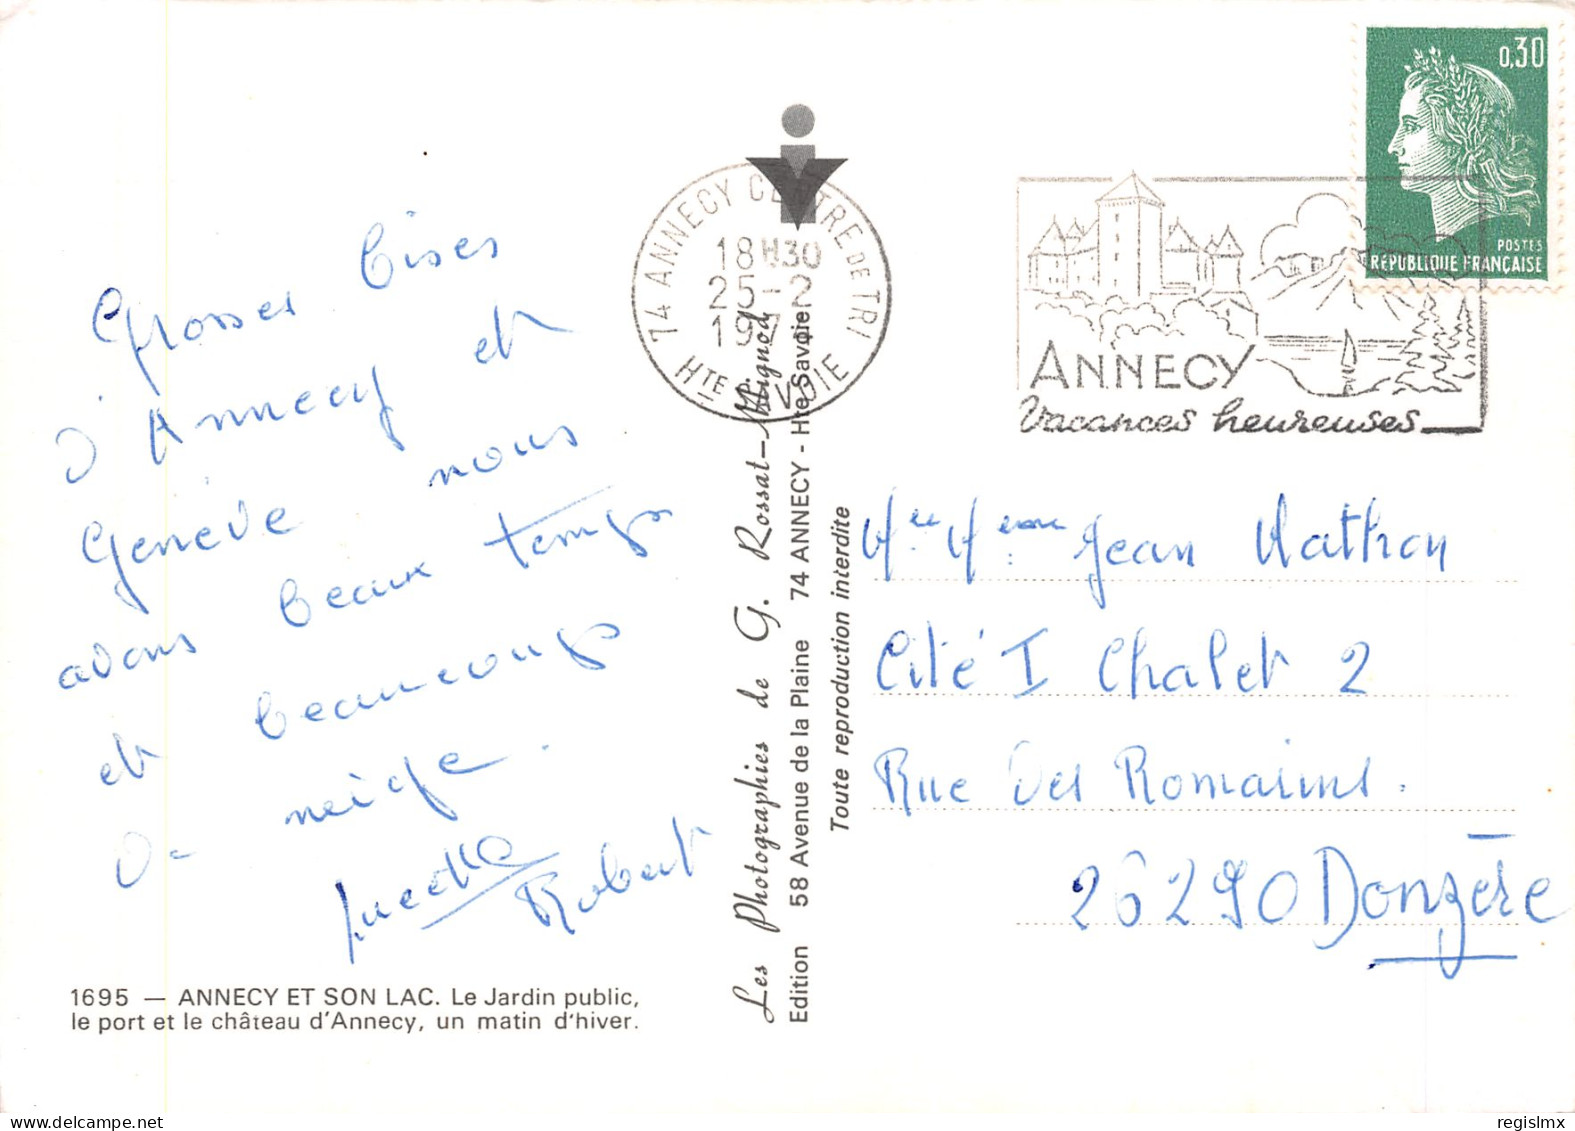 Grosses bises
d'Annecy et
Genève nous
avons beaux temps
et beaucoup
de neige.
Robert
1695 — ANNECY ET SON LAC. Le Jardin public,
le port et le château d'Annecy, un matin d'hiver.
Les Photographies de G. Rossat-Mignod
Edition 58 Avenue de la Plaine 74 ANNECY - Hte Savoie
Toute reproduction interdite
74 ANNECY CENTRE DE TRI
18H30
25-2
197
HTE SAVOIE
ANNECY
Vacances heureuses
0,30
POSTES
REPUBLIQUE FRANÇAISE
Jean Mathon
Cité I Chalet 2
Rue des Romains.
26290 Donzère
regislmx